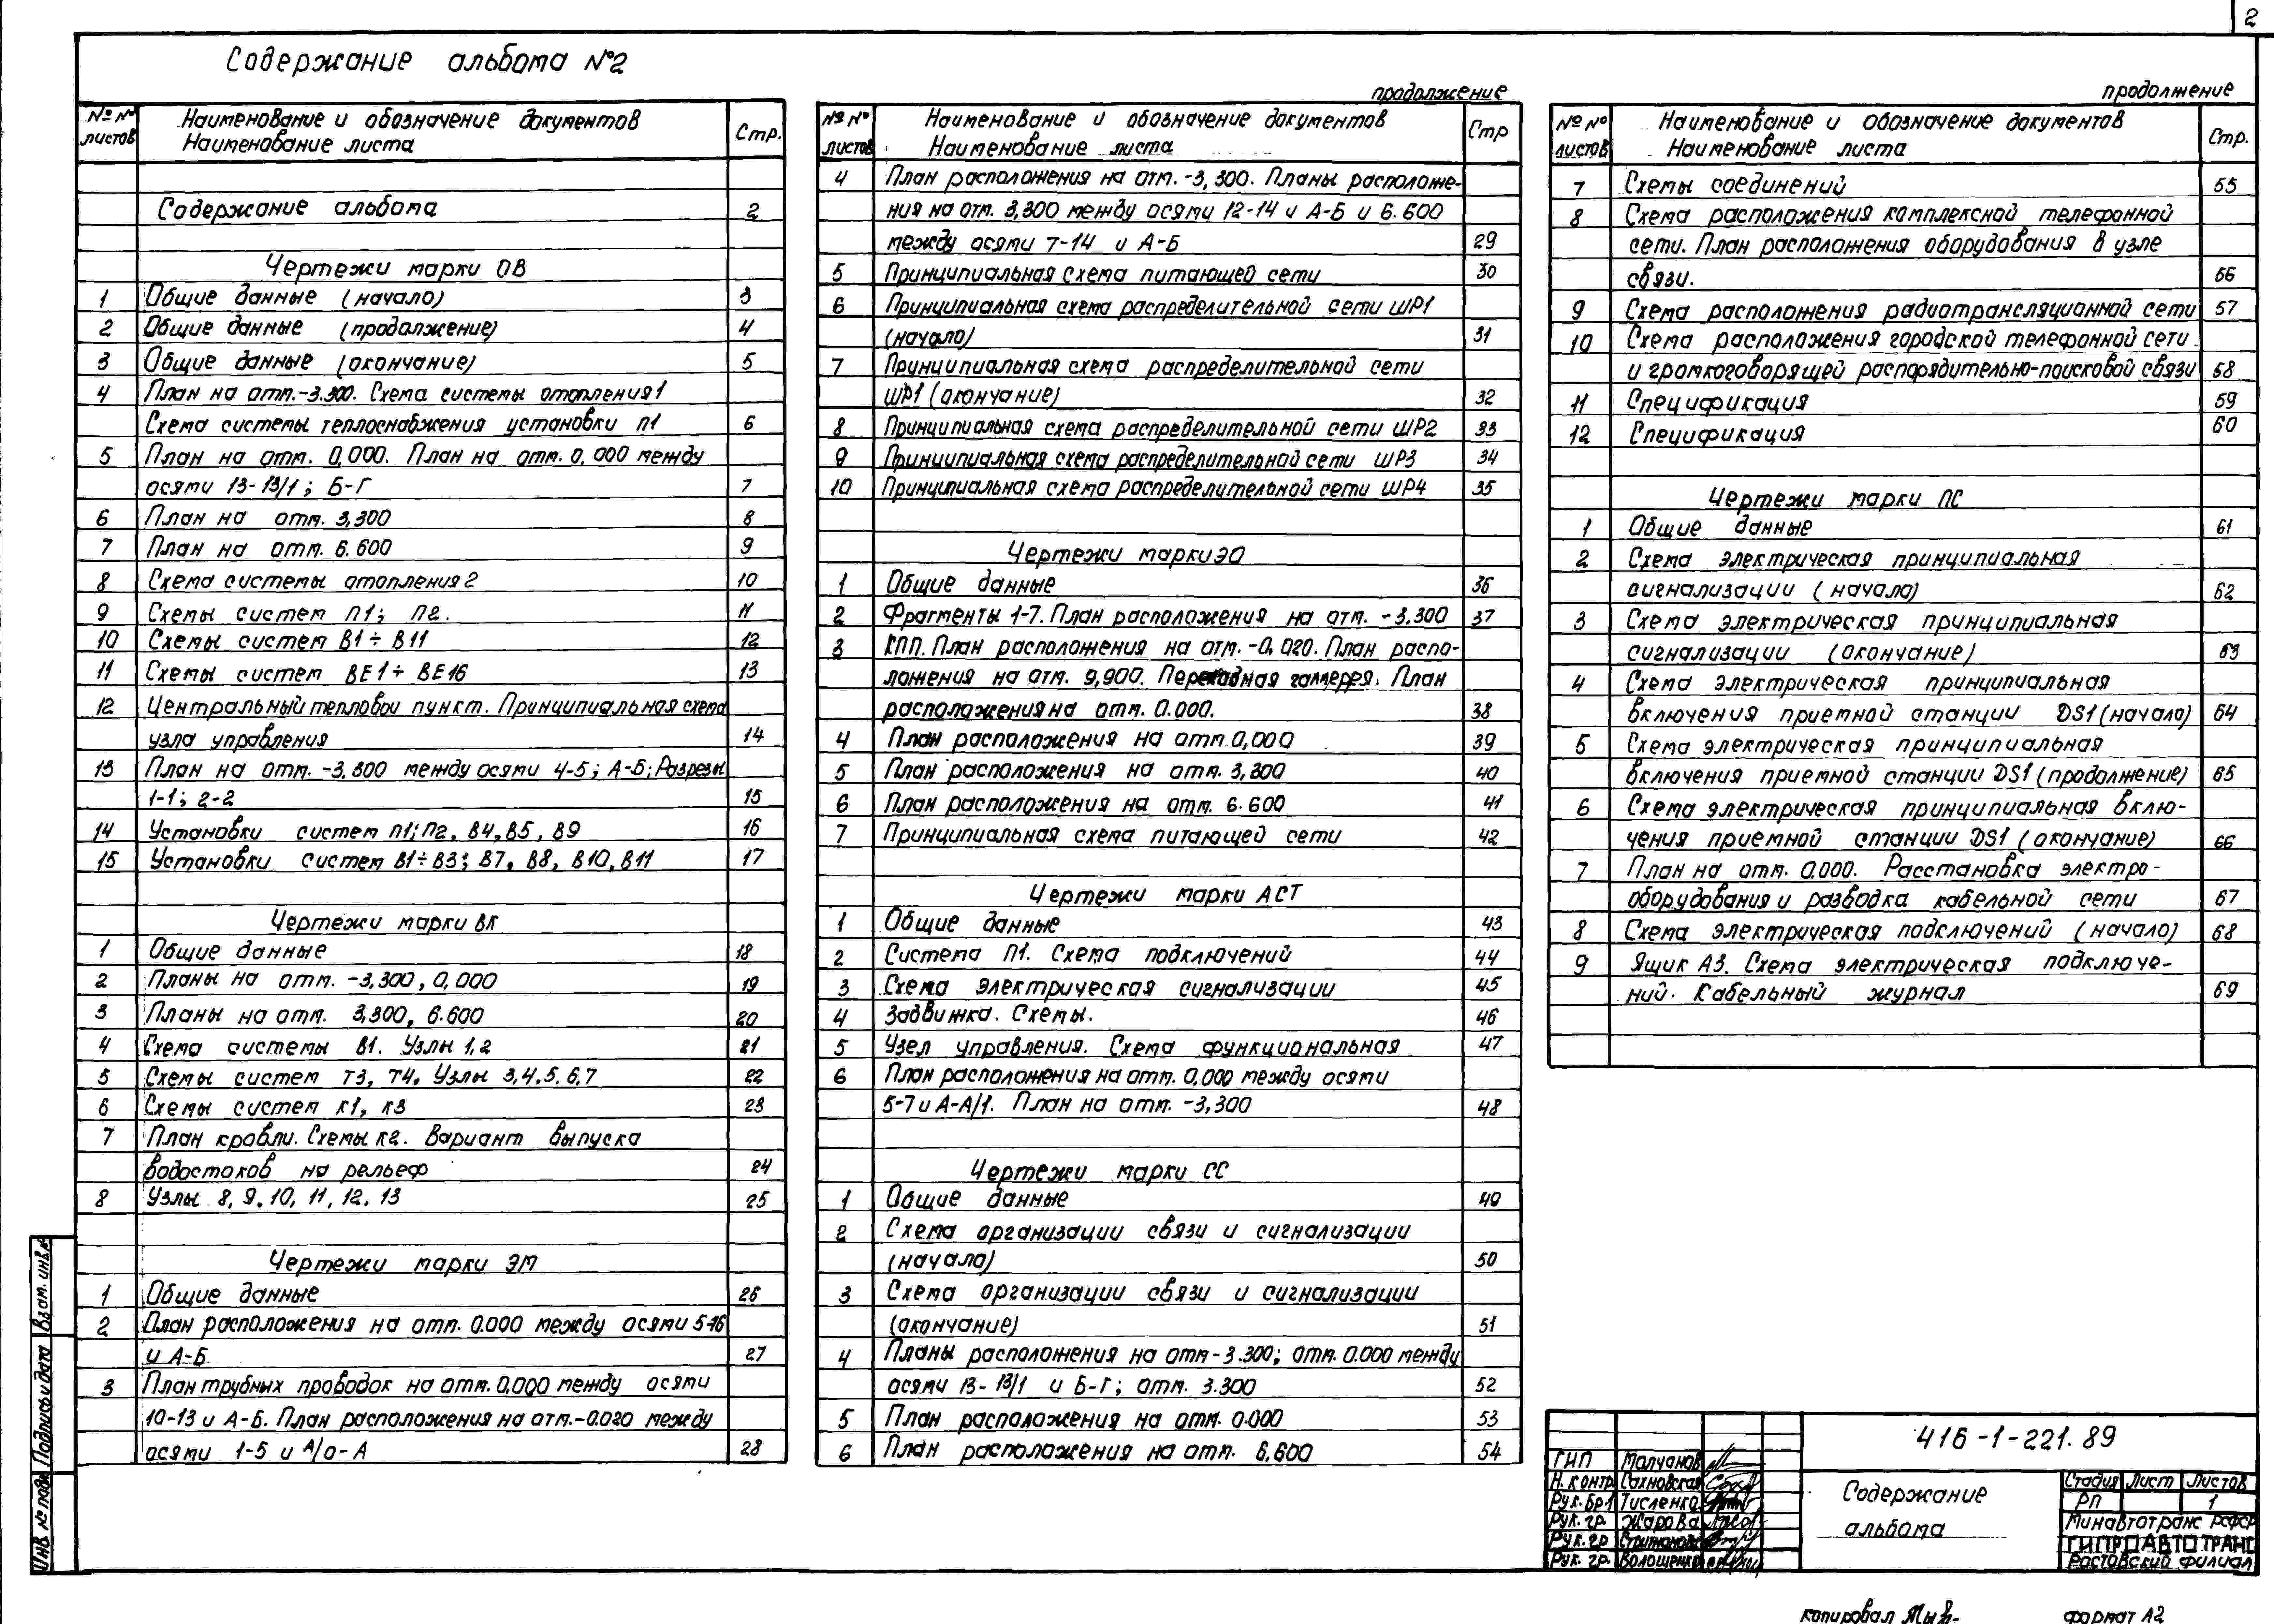 2
Содержание альбома №2
№ №
листов
Наименование и обозначение документов
Наименование листа
Стр.
Содержание альбома 2
Чертежи марки ОВ
1 Общие данные (начало) 3
2 Общие данные (продолжение) 4
3 Общие данные (окончание) 5
4 План на отм.-3.300. Схема системы отопления 1
Схема системы теплоснабжения установки П1 6
5 План на отм. 0,000. План на отм. 0,000 между
осями 13-13/1; Б-Г 7
6 План на отм. 3,300 8
7 План на отм. 6.600 9
8 Схема системы отопления 2 10
9 Схемы систем П1; П2. 11
10 Схемы систем В1÷В11 12
11 Схемы систем ВЕ1÷ВЕ16 13
12 Центральный тепловой пункт. Принципиальная схема
узла управления 14
13 План на отм. -3,300 между осями 4-5; А-Б; Разрезы
1-1; 2-2 15
14 Установки систем П1; П2, В4, В5, В9 16
15 Установки систем В1÷В3; В7, В8, В10, В11 17
Чертежи марки ВК
1 Общие данные 18
2 Планы на отм. -3,300, 0,000 19
3 Планы на отм. 3,300, 6.600 20
4 Схема системы В1. Узлы 1,2 21
5 Схемы систем Т3, Т4. Узлы 3,4,5,6,7 22
6 Схемы систем К1, К3 23
7 План кровли. Схемы К2. Вариант выпуска
водостоков на рельеф 24
8 Узлы 8, 9, 10, 11, 12, 13 25
Чертежи марки ЭМ
1 Общие данные 26
2 План расположения на отм. 0.000 между осями 5-16
и А-Б 27
3 План трубных проводок на отм. 0,000 между осями
10-13 и А-Б. План расположения на отм.-0.020 между
осями 1-5 и А/0-А 28
продолжение
№ №
листов
Наименование и обозначение документов
Наименование листа
Стр
4 План расположения на отм. -3,300. Планы расположе-
ния на отм. 3,300 между осями 12-14 и А-Б и 6.600
между осями 7-14 и А-Б 29
5 Принципиальная схема питающей сети 30
6 Принципиальная схема распределительной сети ШР1
(начало) 31
7 Принципиальная схема распределительной сети
ШР1 (окончание) 32
8 Принципиальная схема распределительной сети ШР2 33
9 Принципиальная схема распределительной сети ШР3 34
10 Принципиальная схема распределительной сети ШР4 35
Чертежи марки ЭО
1 Общие данные 36
2 Фрагменты 1-7. План расположения на отм. -3.300 37
3 КПП. План расположения на отм. -0,020. План распо-
ложения на отм. 9,900. Переходная галлерея. План
расположения на отм. 0.000. 38
4 План расположения на отм 0,000 39
5 План расположения на отм. 3,300 40
6 План расположения на отм. 6.600 41
7 Принципиальная схема питающей сети 42
Чертежи марки АСТ
1 Общие данные 43
2 Система П1. Схема подключений 44
3 Схема электрическая сигнализации 45
4 Задвижка. Схемы. 46
5 Узел управления. Схема функциональная 47
6 План расположения на отм. 0,000 между осями
5-7 и А-А/1. План на отм. -3,300 48
Чертежи марки СС
1 Общие данные 49
2 Схема организации связи и сигнализации
(начало) 50
3 Схема организации связи и сигнализации
(окончание) 51
4 Планы расположения на отм-3.300; отм. 0.000 между
осями 13-13/1 и Б-Г; отм. 3.300 52
5 План расположения на отм. 0.000 53
6 План расположения на отм. 6,600 54
продолжение
№ №
листов
Наименование и обозначение документов
Наименование листа
Стр.
7 Схемы соединений 55
8 Схема расположения комплексной телефонной
сети. План расположения оборудования в узле
связи. 56
9 Схема расположения радиотрансляционной сети 57
10 Схема расположения городской телефонной сети
и громкоговорящей распорядительно-поисковой связи 58
11 Спецификация 59
12 Спецификация 60
Чертежи марки ПС
1 Общие данные 61
2 Схема электрическая принципиальная
сигнализации (начало) 62
3 Схема электрическая принципиальная
сигнализации (окончание) 63
4 Схема электрическая принципиальная
включения приемной станции DS1 (начало) 64
5 Схема электрическая принципиальная
включения приемной станции DS1 (продолжение) 65
6 Схема электрическая принципиальная вклю-
чения приемной станции DS1 (окончание) 66
7 План на отм. 0.000. Расстановка электро-
оборудования и разводка кабельной сети 67
8 Схема электрическая подключений (начало) 68
9 Ящик А3. Схема электрическая подключе-
ний. Кабельный журнал 69
Взам. инв.№
Подпись и дата
Инв. № подл
416-1-221.89
ГИП Малчанов
Н. контр Сахновская
Рук. бр. Тисленко
Рук. гр. Жарова
Рук. гр
Рук. гр. Волощенко
Содержание
альбома
Стадия Лист Листов
РП 1
Минавтотранс РСФСР
ГИПРОАВТОТРАНС
Ростовский филиал
копировал
формат А2